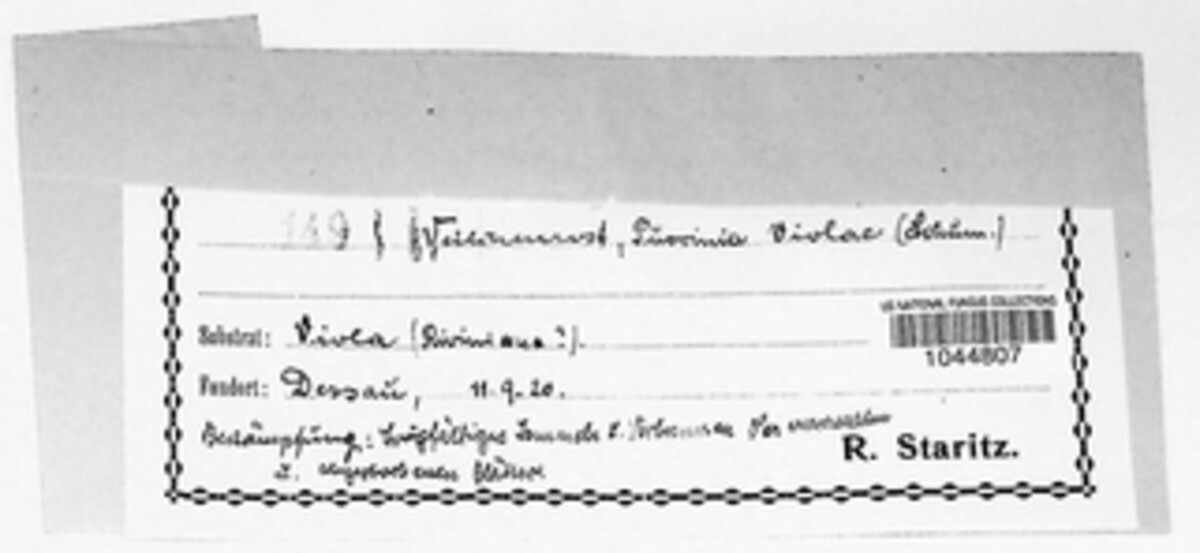 149 Veilchenrost, Puccinia Violae (Schum.)
US NATIONAL FUNGUS COLLECTIONS
Substrat: Viola (Riviniana?).
1044807
Fundort: Dessau, 11.9.20.
Bekämpfung: Sorgfältiges Sammeln u. Verbrennen der
R. Staritz.
u. abgestorbenen Blätter